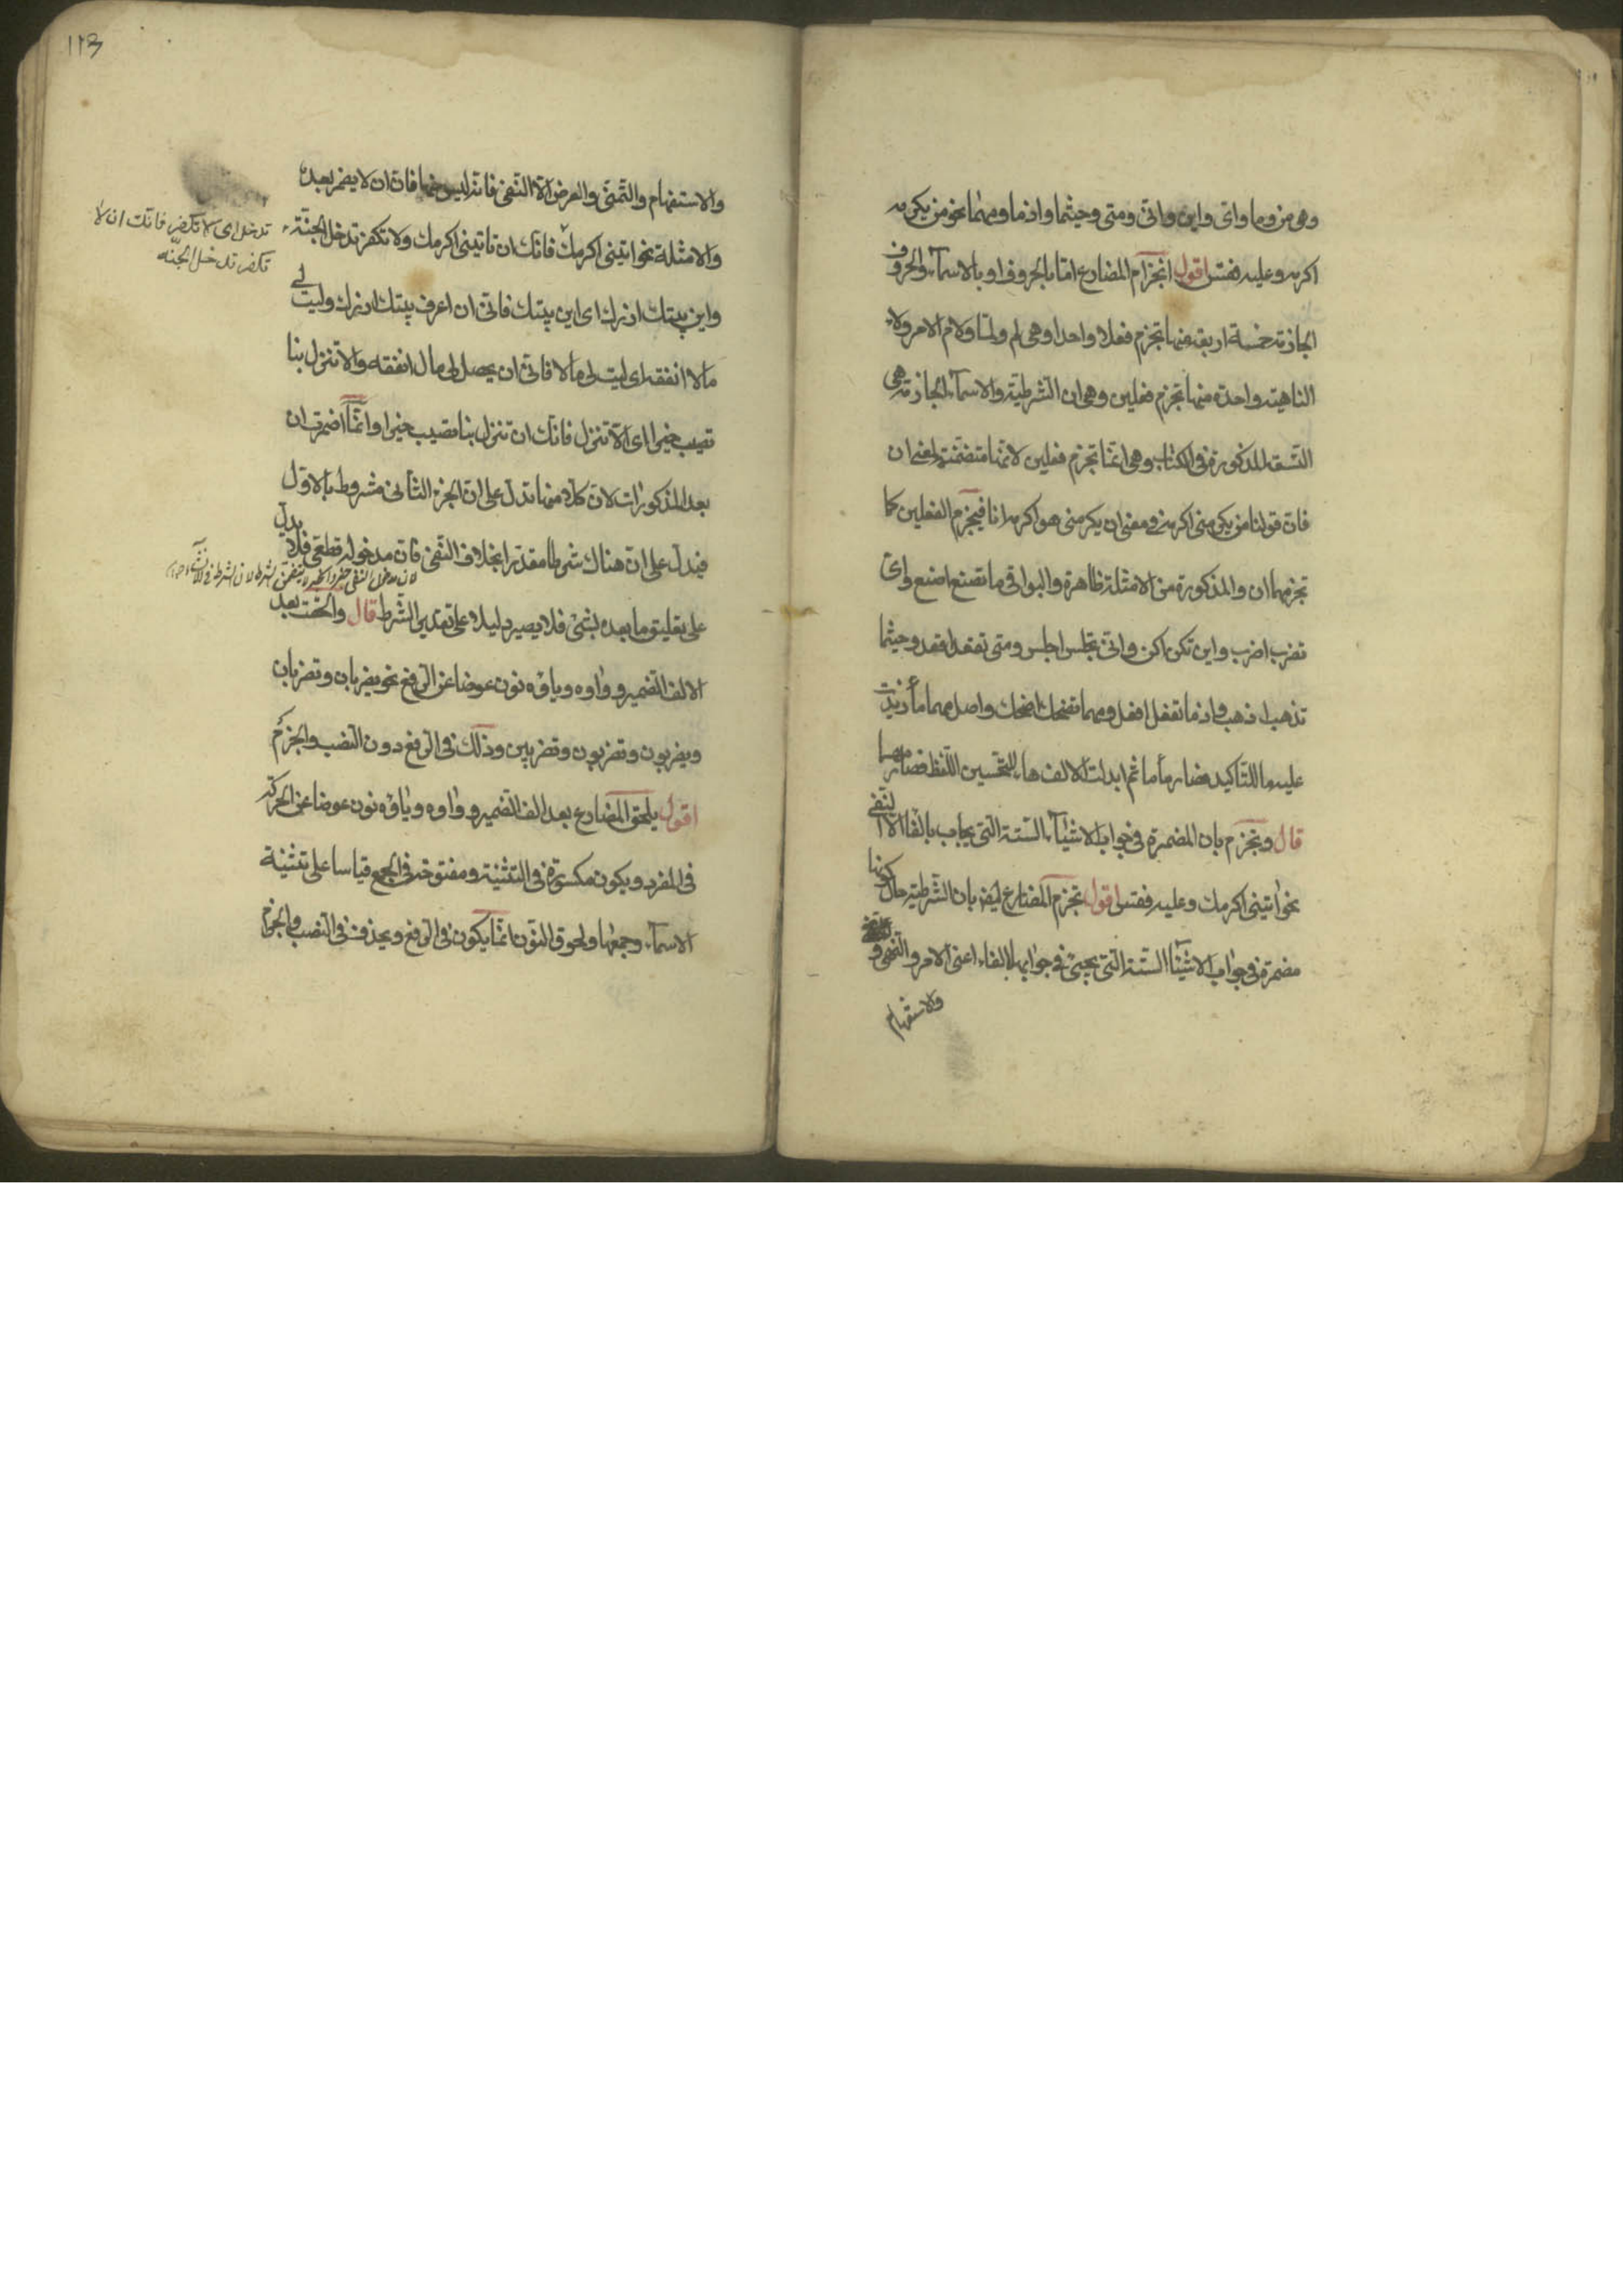 وهى من وما واى واين وانى ومتى وحيثما واذما ومهما نحو من يكرمنى
اكرمه وعليه فقس اقول انجزام المضارع اما بالحروف او بالاسماء والحروف
الجازمة خمسة اربعة منها تجزم فعلا واحدا وهى لم ولما ولام الامر ولاء
الناهية وواحدة منها تجزم فعلين وهى ان الشرطية والاسماء الجازمة هى
التسعة المذكورة فى الكتاب وهى انما تجزم فعلين لانها متضمنة لمعنى ان
فان قولنا من يكرمنى اكرمه فى معنى ان يكرمنى هو اكرمه انا فيجزم الفعلين كما
تجزمهما ان والمذكورة من الامثلة ظاهرة والبواقى ما تصنع اصنع واى
تضرب اضرب واين تكن اكن وانى تجلس اجلس ومتى تقعد اقعد وحيثما
تذهب اذهب واذما تفعل افعل ومهما تضحك اضحك واصل مهما ما زيدت
عليه ما للتاكيد فصار ما ما ثم ابدلت الالف هاء لتحسين اللفظ فصار مهما
قال وتجزم بان المضمرة فى جواب الاشياء الستة التى يجاب بالفاء الا النفى
نحو ايتنى اكرمك وعليه فقس اقول تجزم المضارع ايضا بان الشرطية حال كونها
مضمرة فى جواب الاشياء الستة التى يجىء فى جوابها بالفاء اعنى الامر والنهى و
والاستفهام
١٢٣
والاستفهام والتمنى والعرض الا النفى فانه ليس منها فان ان لا يضمر بعده
والامثلة نحو ايتنى اكرمك فانك ان تاتينى اكرمك ولا تكفر تدخل الجنة
تدخل اى لا تكفر فانك ان لا
تكفر تدخل الجنة
واين بيتك ازرك اى اين بيتك فانى ان اعرف بيتك ازرك وليت لى
مالا انفقه اى ليت لى مالا فانى ان يحصل لى مال انفقه والا تنزل بنا
تصب خيرا اى الا تنزل فانك ان تنزل بنا تصيب خيرا وانما اضمرت ان
بعد المذكورات لان كلا منها تدل على ان الجزء الثانى مشروط بالاول
فيدل على ان هناك شرطا مقدرا بخلاف النفى فان مدخوله قطعى فلا يدل
على تعليق ما بعده بشئ فلا يصير دليلا على تقدير الشرط قال والحقت بعد
الالف الضمير وواوه ويائه نون عوضا عن الرفع نحو يضربان وتضربان
ويضربون وتضربون وتضربين وذلك فى الرفع دون النصب والجزم
اقول يلحق المضارع بعد الف الضمير وواوه ويائه نون عوضا عن الحركة
فى المفرد ويكون مكسورة فى التثنية ومفتوحة فى الجمع قياسا على تثنية
الاسماء وجمعها ولحوق النون انما يكون فى الرفع ويحذف فى النصب والجزم